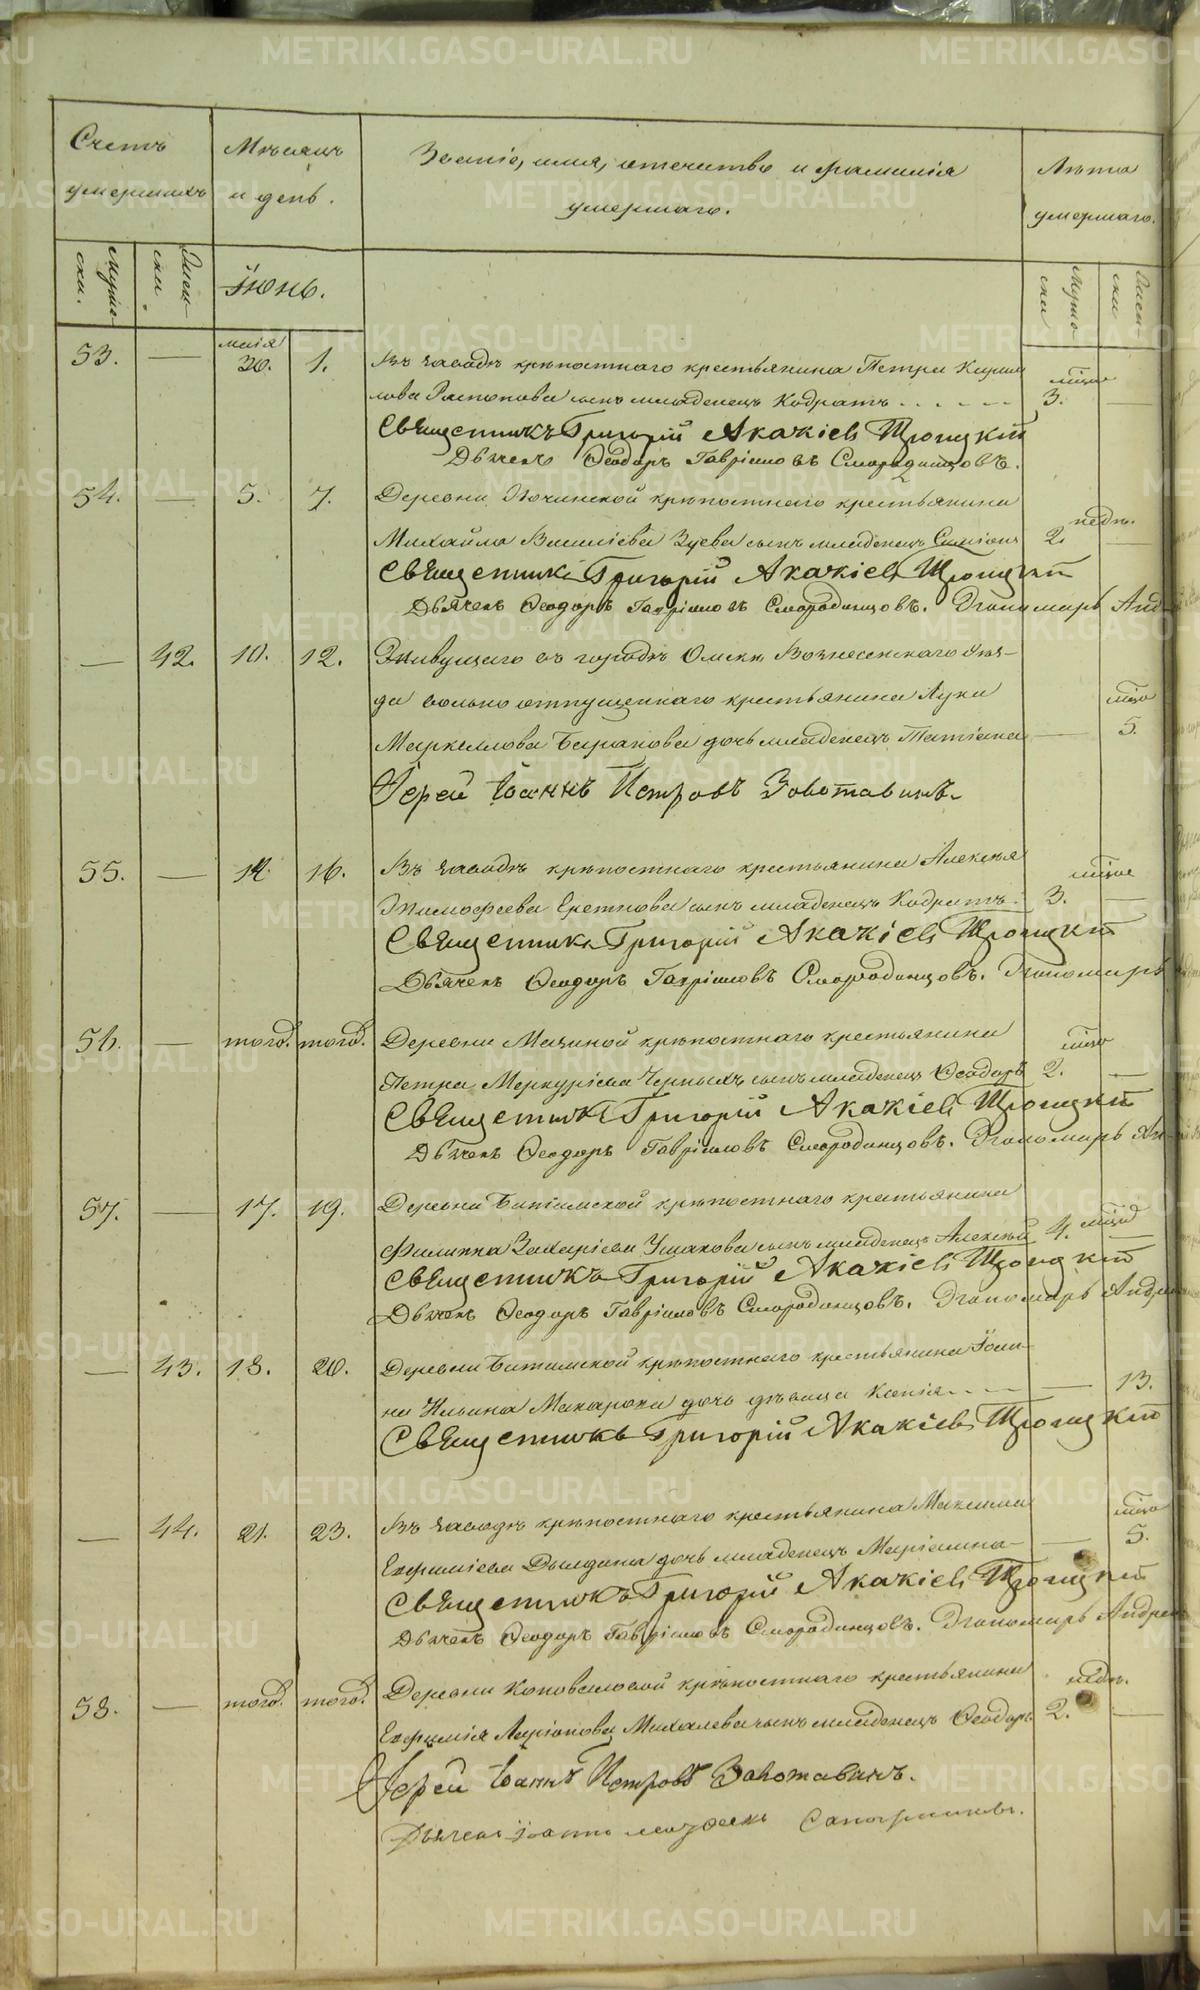 Счетъ умершихъ
Мѣсяцъ и день.
Званіе, имя, отечество и фамилія
умершаго.
Лѣта умершаго.
Мужески.
Женски.
Іюнь.
Мужески
Женски
53. — маія 30. 1. Въ заводѣ крѣпостнаго крестьянина Петра Кирил
лова сынъ младенецъ Кодратъ 3. мѣсяц —
Священникъ Григорій Акакіевъ Троицкій
Дьячекъ Ѳеодоръ Гавріиловъ Смородинцовъ.
54. — 5. 7. Деревни Починской крѣпостнаго крестьянина
Михайла Василіева Зуева сынъ младенецъ Симіонъ 2. недѣ. —
Священникъ Григорій Акакіевъ Троицкій
Дьячекъ Ѳеодоръ Гавріиловъ Смородинцовъ. Пономарь Анд
— 42. 10. 12. Живущаго въ городѣ Вознесенскаго уѣз-
да вольно отпущеннаго крестьянина Луки
Маркеллова Баранова дочь младенецъ Татіана — мѣсяц 5.
Іерей Іоаннъ Петровъ Золотавинъ.
55. — 14. 16. Въ заводѣ крѣпостнаго крестьянина Алексѣя
Тимофеева сынъ младенецъ Кодратъ. 3. мѣсяц —
Священникъ Григорій Акакіевъ Троицкій
Дьячекъ Ѳеодоръ Гавріиловъ Смородинцовъ. Пономарь
56. — тогож. тогож. Деревни крѣпостнаго крестьянина
Петра Меркуріева Черныхъ сынъ младенецъ Ѳеодоръ 2. мѣсяц —
Священникъ Григорій Акакіевъ Троицкій
Дьячекъ Ѳеодоръ Гавріиловъ Смородинцовъ. Пономарь Ан
57. — 17. 19. Деревни Битимской крѣпостнаго крестьянина
Филиппа Захаріева Ушакова сынъ младенецъ Алексѣй 4. мѣсяц —
Священникъ Григорій Акакіевъ Троицкій
Дьячекъ Ѳеодоръ Гавріиловъ Смородинцовъ. Пономарь Андре
— 43. 18. 20. Деревни Битимской крѣпостнаго крестьянина Іоан-
на Ильина Макарова дочь дѣвица Ксенія — 13.
Священникъ Григорій Акакіевъ Троицкій
— 44. 21. 23. Въ заводѣ крѣпостнаго крестьянина Максима
Евфиміева Дылдина дочь младенецъ Маріамна — мѣсяц 5.
Священникъ Григорій Акакіевъ Троицкій
Дьячекъ Ѳеодоръ Гавріиловъ Смородинцовъ. Пономарь Андре
58. — тогож. тогож. Деревни Коноваловой крѣпостнаго крестьянина
Евфимія Ларіонова Михалева сынъ младенецъ Ѳеодоръ 2. недѣ. —
Іерей Іоаннъ Петровъ Золотавинъ.
Дьячекъ Іоаннъ Сапожниковъ.
METRIKI.GASO-URAL.RU